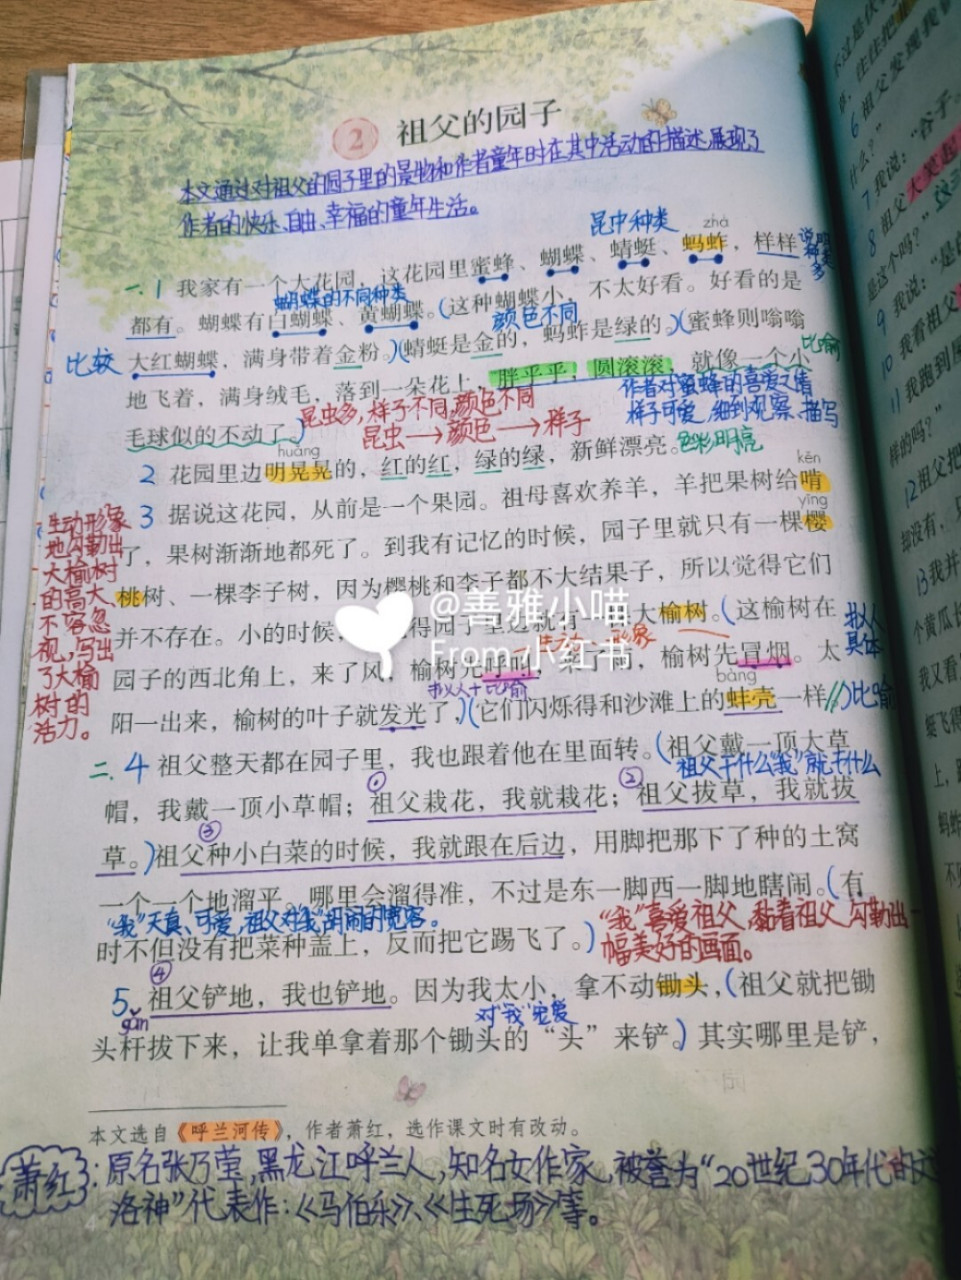 2 祖父的园子
本文通过对祖父的园子里的景物和作者童年时在其中活动的描述,展现了
作者的快乐、自由、幸福的童年生活。
昆中种类
zhà
一.1 我家有一个大花园，这花园里蜜蜂、蝴蝶、蜻蜓、蚂蚱，样样
说明种类多
蝴蝶的不同种类
都有。蝴蝶有白蝴蝶、黄蝴蝶。(这种蝴蝶小，不太好看。好看的是
颜色不同
比较 大红蝴蝶，满身带着金粉。)(蜻蜓是金的，蚂蚱是绿的。)(蜜蜂则嗡嗡
比喻
地飞着，满身绒毛，落到一朵花上，胖乎乎，圆滚滚，就像一个小
作者对蜜蜂的喜爱之情
样子可爱,细到观察、描写
毛球似的不动了。)
昆虫多,样子不同,颜色不同
昆虫→颜色→样子
huǎng
2 花园里边明晃晃的，红的红，绿的绿，新鲜漂亮。色彩明亮
kěn
3 据说这花园，从前是一个果园。祖母喜欢养羊，羊把果树给啃
yīng
了，果树渐渐地都死了。到我有记忆的时候，园子里就只有一棵樱
桃树、一棵李子树，因为樱桃和李子都不大结果子，所以觉得它们
并不存在。小的时候，得园子里边就有一大榆树。(这榆树在
拟人
具体
园子的西北角上，来了风，榆树先呼叫，来了雨，榆树先冒烟。太
拟人+比喻
bàng
阳一出来，榆树的叶子就发光了,)(它们闪烁得和沙滩上的蚌壳一样//)比喻
生动形象
地勾勒出
大榆树
的高大,
不容忽
视,写出
了大榆
树的
活力。
二.4 祖父整天都在园子里，我也跟着他在里面转。(祖父戴一顶大草
祖父干什么"我"就干什么
① ②
帽，我戴一顶小草帽；祖父栽花，我就栽花；祖父拔草，我就拔
③
草。)祖父种小白菜的时候，我就跟在后边，用脚把那下了种的土窝
一个一个地溜平。哪里会溜得准，不过是东一脚西一脚地瞎闹。(有
"我"天真、可爱,祖父对"我"胡闹的宽容。
时不但没有把菜种盖上，反而把它踢飞了。)
"我"喜爱祖父,黏着祖父,勾勒出一
幅美好的画面。
④
5 祖父铲地，我也铲地。因为我太小，拿不动锄头，(祖父就把锄
gǎn
对"我"宠爱
头杆拔下来，让我单拿着那个锄头的“头”来铲。)其实哪里是铲，
本文选自《呼兰河传》，作者萧红，选作课文时有改动。
萧红:原名张乃莹,黑龙江呼兰人,知名女作家,被誉为"20世纪30年代的文
洛神"代表作:《马伯乐》、《生死场》等。
4
@善雅小喵
From 小红书
6 祖父发现我
什么？”
7 我说：“谷子。
祖父大笑起
8
是这个吗？”
我说：“是
9
我看祖父
10
我跑到
11
样的吗？”
12 祖父把
却没有，
13 我并
个黄瓜
我又看
蜓飞得
上，
蚂蚱